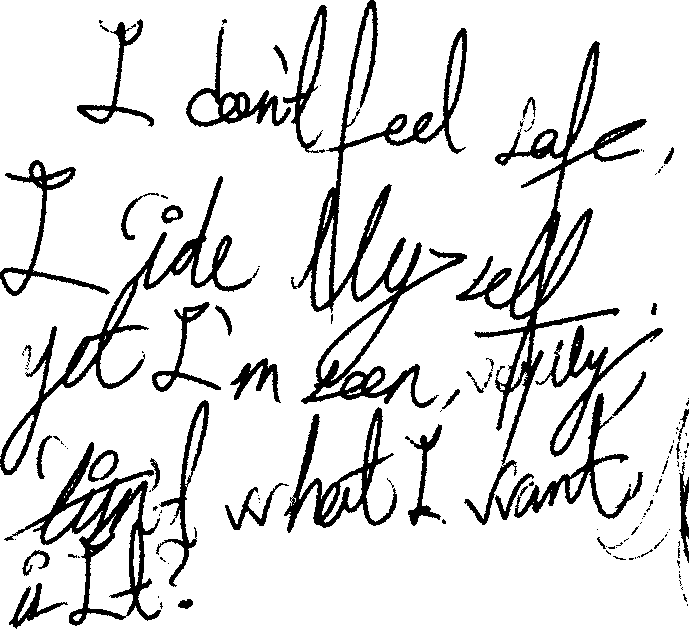 I don't feel safe,
I hide Myself
yet I'm seen,
find what I want
is It?